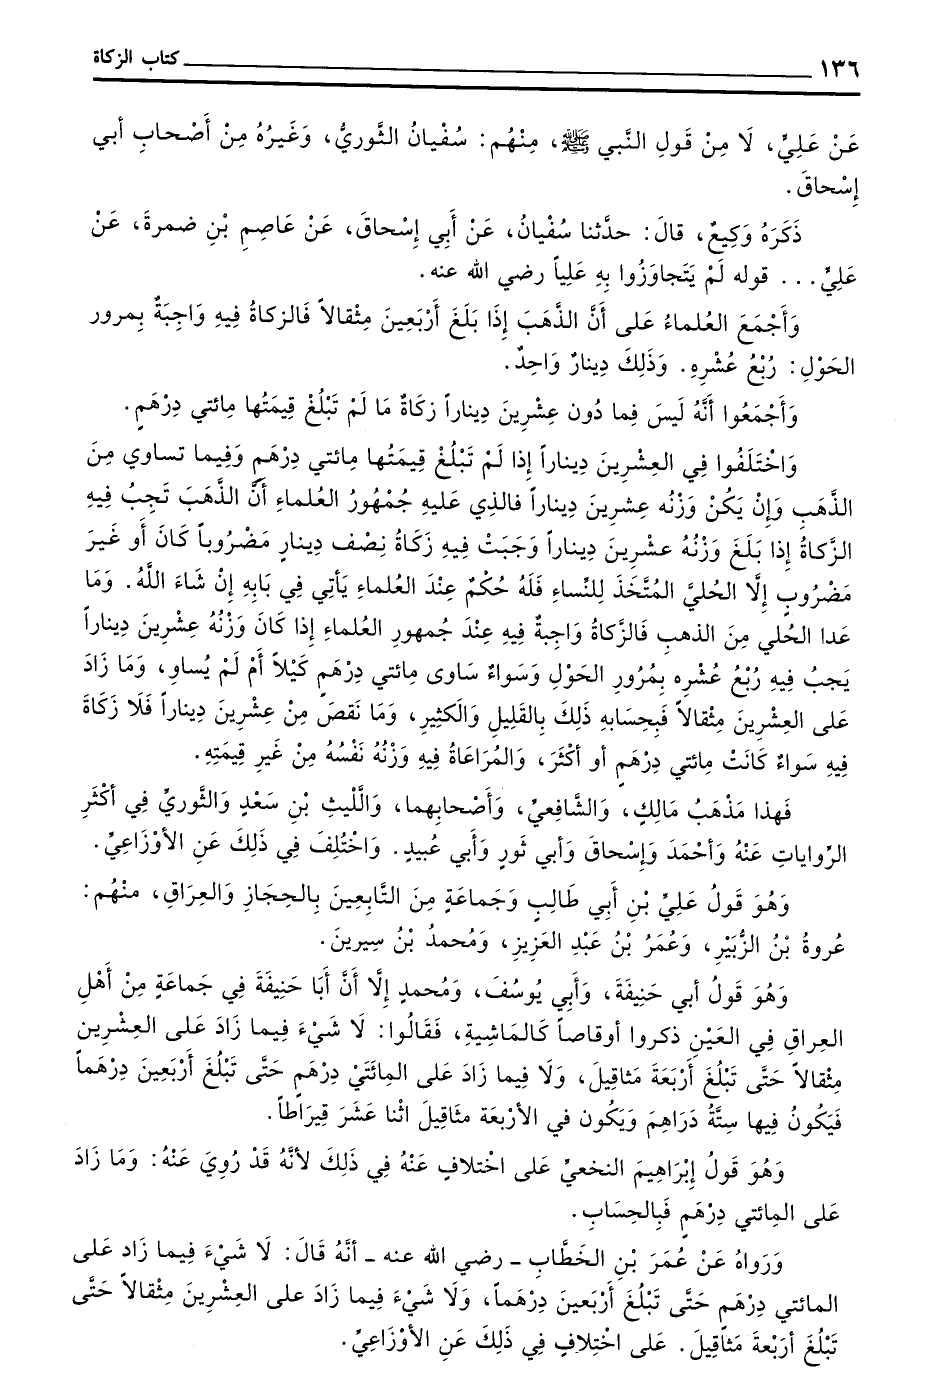 ١٣٦ كتاب الزكاة
عَنْ عَلِيٍّ، لَا مِنْ قَولِ النَّبي ﷺ، مِنْهُم: سُفْيانُ الثَّوريُّ، وَغَيرُهُ مِنْ أَصْحابِ أبي
إسْحاقَ.
ذَكَرَهُ وَكِيعٌ، قالَ: حدَّثنا سُفْيانُ، عَنْ أَبِي إسْحاقَ، عَنْ عَاصِمِ بْنِ ضمرةَ، عَنْ
عَلِيٍّ... قوله لَمْ يَتَجاوَزُوا بِهِ عَلِياً رضي الله عنه.
وَأجْمَعَ العُلماءُ عَلى أنَّ الذَّهَبَ إذَا بَلَغَ أرْبَعِينَ مِثْقالاً فَالزكاةُ فِيهِ وَاجِبَةٌ بِمرور
الحَوْلِ: رُبْعُ عُشْرِهِ. وَذَلِكَ دِينارٌ وَاحِدٌ.
وَأجْمَعُوا أنَّهُ لَيسَ فِما دُون عِشْرِينَ دِيناراً زكَاةٌ مَا لَمْ تَبْلُغْ قِيمَتُها مِائتي دِرْهَمٍ.
وَاخْتَلَفُوا فِي العِشْرِينَ دِيناراً إذَا لَمْ تَبْلُغْ قِيمَتُها مائتي دِرْهَمٍ وَفِيما تساوي مِنَ
الذَّهَبِ وَإنْ يَكُنْ وَزْنُه عِشرينَ دِيناراً فالذي عَليهِ جُمْهُورُ العُلماءِ أنَّ الذَّهَبَ تَجِبُ فِيهِ
الزَّكاةُ إذا بَلَغَ وَزْنُهُ عشرينَ دِيناراً وَجَبَتْ فِيهِ زَكَاةُ نِصْف دِينارٍ مَضْرُوباً كَانَ أو غَيرَ
مَضْرُوبٍ إلَّا الحُليَّ المُتَّخَذَ لِلنِّساءِ فَلَهُ حُكْمٌ عِنْدَ العُلماءِ يَأتي فِي بَابِهِ إنْ شَاءَ اللَّهُ. وَمَا
عَدا الحُلي مِنَ الذهبِ فَالزَّكاةُ وَاجِبةٌ فِيهِ عِنْدَ جُمهورِ العُلماءِ إذَا كَانَ وَزْنُهُ عِشْرِينَ دِيناراً
يَجبُ فِيهِ رُبْعُ عُشْرِهِ بِمُرُورِ الحَوْلِ وَسَواءٌ سَاوى مِائتي دِرْهَمٍ كَيْلاً أمْ لَمْ يُساوِ، وَمَا زَادَ
عَلى العِشْرِينَ مِثْقالاً فَبِحسَابِهِ ذَلِكَ بِالقَلِيلِ وَالكَثِيرِ، وَمَا نَقصَ مِنْ عِشْرِينَ دِيناراً فَلَا زَكَاةَ
فِيهِ سَواءٌ كَانَتْ مِائتي دِرْهَمٍ أو أكْثَرَ، وَالمُرَاعَاةُ فِيهِ وَزْنُهُ نَفْسُهُ مِنْ غَيرِ قِيمَتِهِ.
فَهذا مَذْهَبُ مَالِكٍ، وَالشَّافعيِّ، وَأصْحابِهما، وَاللَّيثِ بْنِ سَعْدٍ وَالثَّوريِّ فِي أكْثَرِ
الرِّواياتِ عَنْهُ وَأحْمَدَ وَإسْحاقَ وَأبي ثَورٍ وَأبي عُبيدٍ. وَاخْتُلِفَ فِي ذَلِكَ عَنِ الأوْزَاعيِّ.
وَهُوَ قَولُ عَلِيِّ بْنِ أَبِي طَالبٍ وَجَماعَةٍ مِنَ التَّابِعينَ بِالحِجَازِ وَالعِرَاقِ، منْهُم:
عُروةُ بْنُ الزُّبَيْرِ، وَعُمَرُ بْنُ عَبْدِ العَزيزِ، وَمُحمدُ بْنُ سِيرينَ.
وَهُوَ قَولُ أبي حَنِيفَةَ، وَأبِي يُوسُفَ، وَمُحمدٍ إلَّا أنَّ أبَا حَنِيفَةَ فِي جَماعَةٍ مِنْ أهْلِ
العِراقِ فِي العَيْنِ ذكروا أوقاصاً كَالمَاشِيةِ، فَقَالُوا: لَا شَيْءَ فِيما زَادَ عَلى العِشْرِينَ
مِثْقالاً حَتَّى تَبْلُغَ أرْبَعَةَ مَثاقِيلَ، وَلَا فِيما زَادَ عَلى المِائتَيْ دِرْهَمٍ حَتَّى تَبْلُغَ أرْبَعِينَ دِرْهَماً
فَيَكُونُ فِيها سِتَّةُ دَرَاهِمَ وَيَكُون في الأرْبعَة مثَاقِيلَ اثْنا عَشَرَ قِيرَاطاً.
وَهُوَ قَولُ إبْرَاهِيمَ النخعيِّ عَلى اخْتلافٍ عَنْهُ فِي ذَلِكَ لأنَّهُ قَدْ رُوِيَ عَنْهُ: وَمَا زَادَ
عَلى المِائتي دِرْهَمٍ فَبِالحِسَابِ.
وَرَوَاهُ عَنْ عُمَرَ بْنِ الخَطَّابِ ـ رضي الله عنه ـ أنَّهُ قَالَ: لَا شَيْءَ فِيما زَاد عَلى
المائتي دِرْهَمٍ حَتَّى تَبْلُغَ أرْبَعينَ دِرْهَماً، وَلَا شَيْءَ فِيما زَادَ على العِشْرِينَ مِثْقالاً حَتَّى
تَبْلُغَ أربَعةَ مَثاقِيلَ. عَلى اخْتِلافٍ فِي ذَلِكَ عَنِ الأوْزَاعِيِّ.